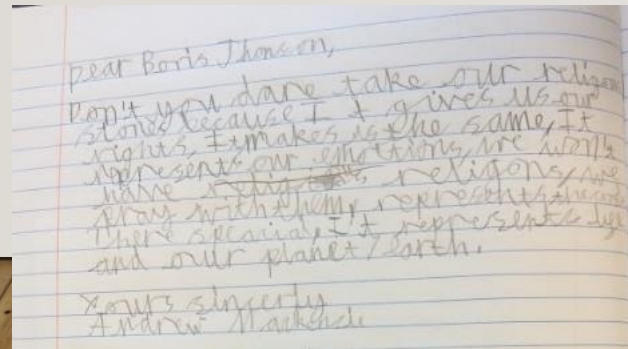 Dear Boris Jhonson,
Don't you dare take our religon
stones because I t gives us our
rights, It makes us the same, It
represents our emottions, we won't
have religons, we
pray with them, represents the
there speacial, I't represents
and our planet/earth.
Yours sincerly
Andrew